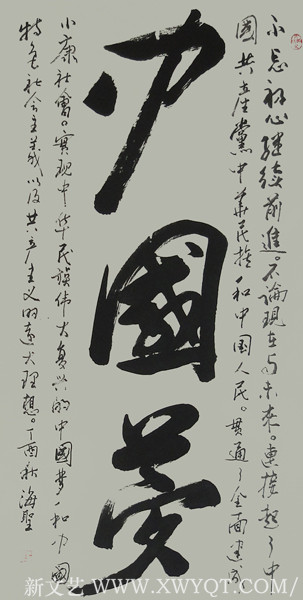 中國夢
不忘初心继续前進。不論現在与未来。連接起了中
國共產黨中華民族和中国人民。贯通了全面建成
小康社會。實現中华民族伟大复兴的中國梦和中國
特色社会主義以及共产主义的遠大理想。丁酉秋海聖
新文艺 WWW.XWYQT.COM